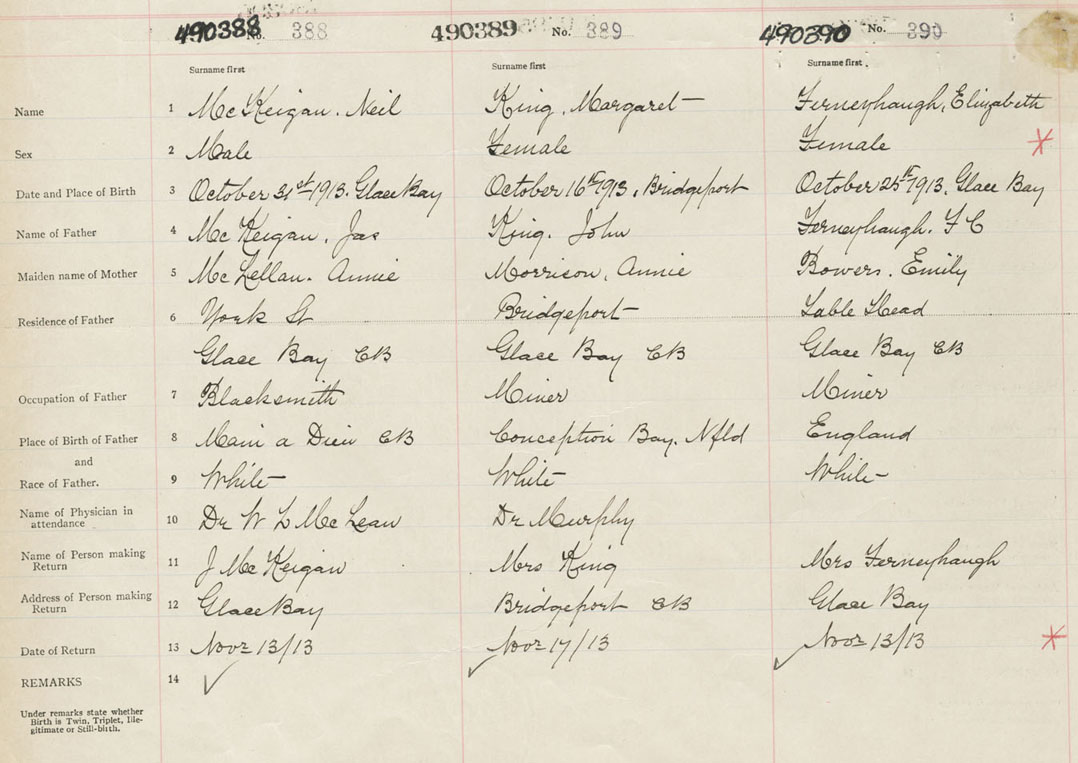 490388 No. 388 490389 No. 389 490390 No. 390
Surname first Surname first Surname first
Name 1 McKeigan. Neil King, Margaret Ferneyhaugh, Elizabeth
Sex 2 Male Female Female
Date and Place of Birth 3 October 31st 1913. Glace Bay October 16th 1913, Bridgeport October 25th 1913, Glace Bay
Name of Father 4 McKeigan, Jas King. John Ferneyhaugh. F C
Maiden name of Mother 5 McLellan. Annie Morrison, Annie Bowers. Emily
Residence of Father 6 York St Bridgeport Sable Head
Glace Bay CB Glace Bay CB Glace Bay CB
Occupation of Father 7 Blacksmith Miner Miner
Place of Birth of Father 8 Main a Dieu CB Conception Bay. Nfld England
and
Race of Father. 9 White White White
Name of Physician in
attendance 10 Dr W L McLean Dr Murphy
Name of Person making
Return 11 J McKeigan Mrs King Mrs Ferneyhaugh
Address of Person making
Return 12 Glace Bay Bridgeport CB Glace Bay
Date of Return 13 Novr 13/13 Novr 17/13 Novr 13/13
REMARKS 14
Under remarks state whether
Birth is Twin, Triplet, Ille-
gitimate or Still-birth.